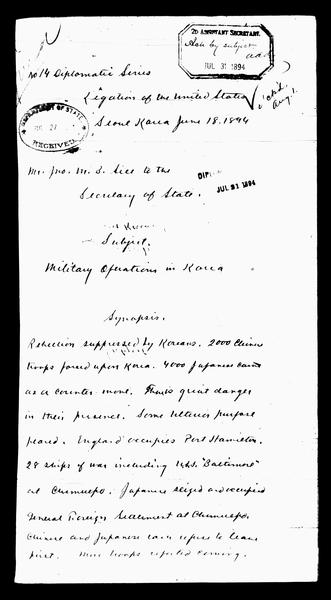 2D ASSISTANT SECRETARY.
Ack by subject
JUL 31 1894
No 14 Diplomatic Series
Legation of the United States
Ack'd
Aug. 1.
Seoul Korea June 18. 1894
DEPARTMENT OF STATE
RECEIVED
Mr. Jno. M. B. Sill to the
JUL 31 1894
Secretary of State.
Subject.
Military Operations in Korea
Synopsis.
Rebellion suppressed by Koreans. 2000 Chinese
troops forced upon Korea. 4000 Japanese came
as a counter move. There is great danger
in their presence. Some ulterior purpose
feared. England occupies Port Hamilton.
28 ships of war including U.S.S. "Baltimore"
at Chemulpo. Japanese seized and occupied
General Foreign Settlement at Chemulpo.
Chinese and Japanese each refuse to leave
first. More troops reported coming.